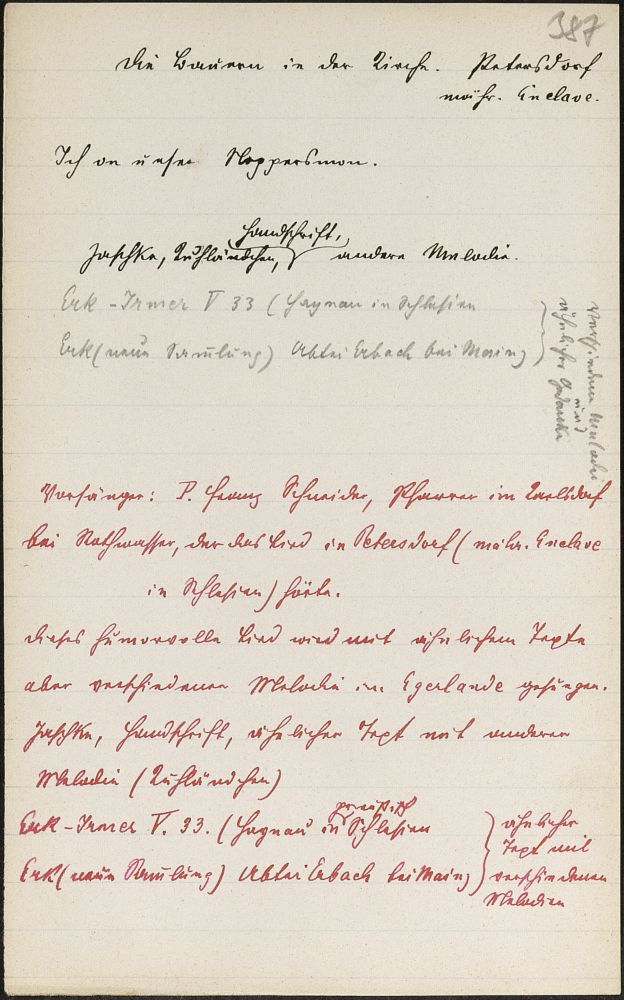 387
Die Bauern in der Kirche. Petersdorf
mähr. Enclave.
Ich on unser Noppersmon.
Handschrift,
Jaschke, Kuhländchen, andere Melodie.
Erk-Irmer V 33 (Haynau in Schlesien
Erk (neue Samlung) Abtei Erbach bei Mainz)
verschiedene Melodie
und
ähnlicher Gedanke
Vorsänger: P. Franz Schneider, Pfarrer in Karlsdorf
bei Rothwasser, der das Lied in Petersdorf (mähr. Enclave
in Schlesien) hörte.
Dieses humorvolle Lied wird mit ähnlichem Texte
aber verschiedener Melodie im Egerlande gesungen.
Jaschke, Handschrift, ähnlicher Text mit anderer
Melodie (Kuhländchen)
preußisch
Erk-Irmer V. 33. (Haynau in Schlesien
Erk (neue Samlung) Abtei Erbach bei Mainz)
ähnlicher
Text mit
verschiedenen
Melodien